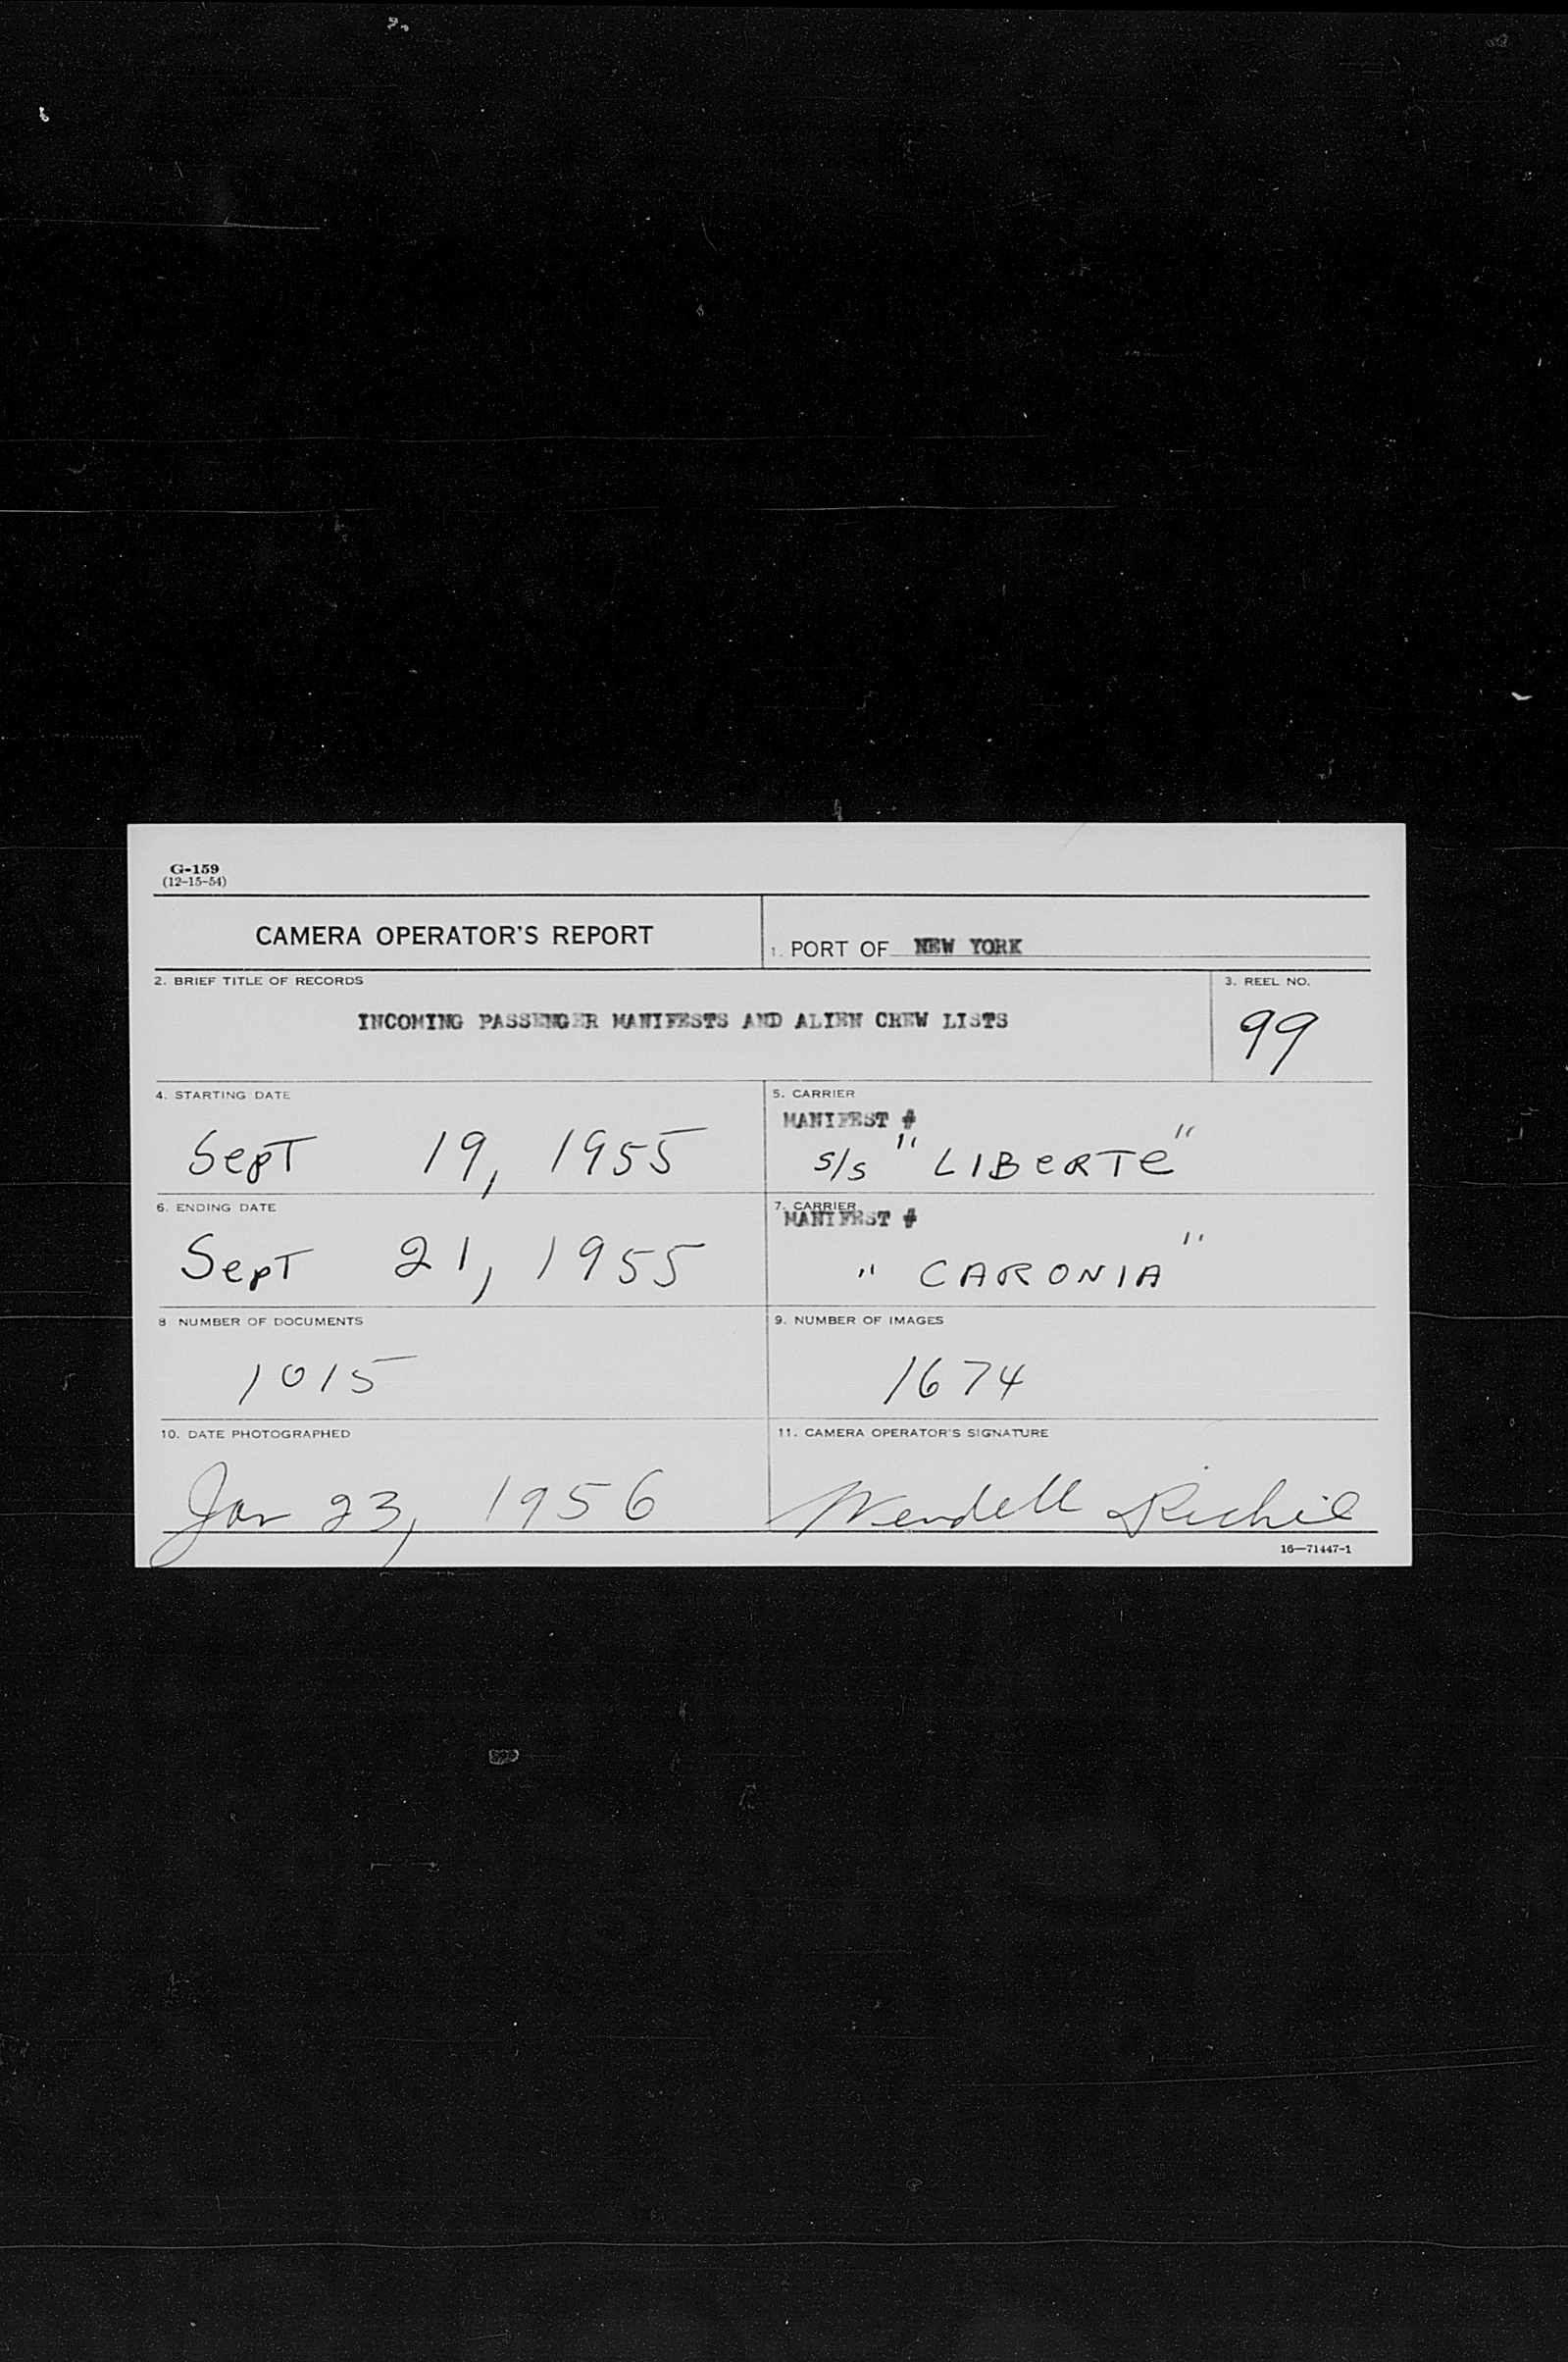 G-159
(12-15-54)
CAMERA OPERATOR'S REPORT
1. PORT OF NEW YORK
2. BRIEF TITLE OF RECORDS
INCOMING PASSENGER MANIFESTS AND ALIEN CREW LISTS
3. REEL NO.
99
4. STARTING DATE
Sept 19, 1955
5. CARRIER
MANIFEST #
S/S "LIBERTE"
6. ENDING DATE
Sept 21, 1955
7. CARRIER
MANIFEST #
" CARONIA "
8 NUMBER OF DOCUMENTS
1015
9. NUMBER OF IMAGES
1674
10. DATE PHOTOGRAPHED
Jan 23, 1956
11. CAMERA OPERATOR'S SIGNATURE
Wendell
16—71447-1